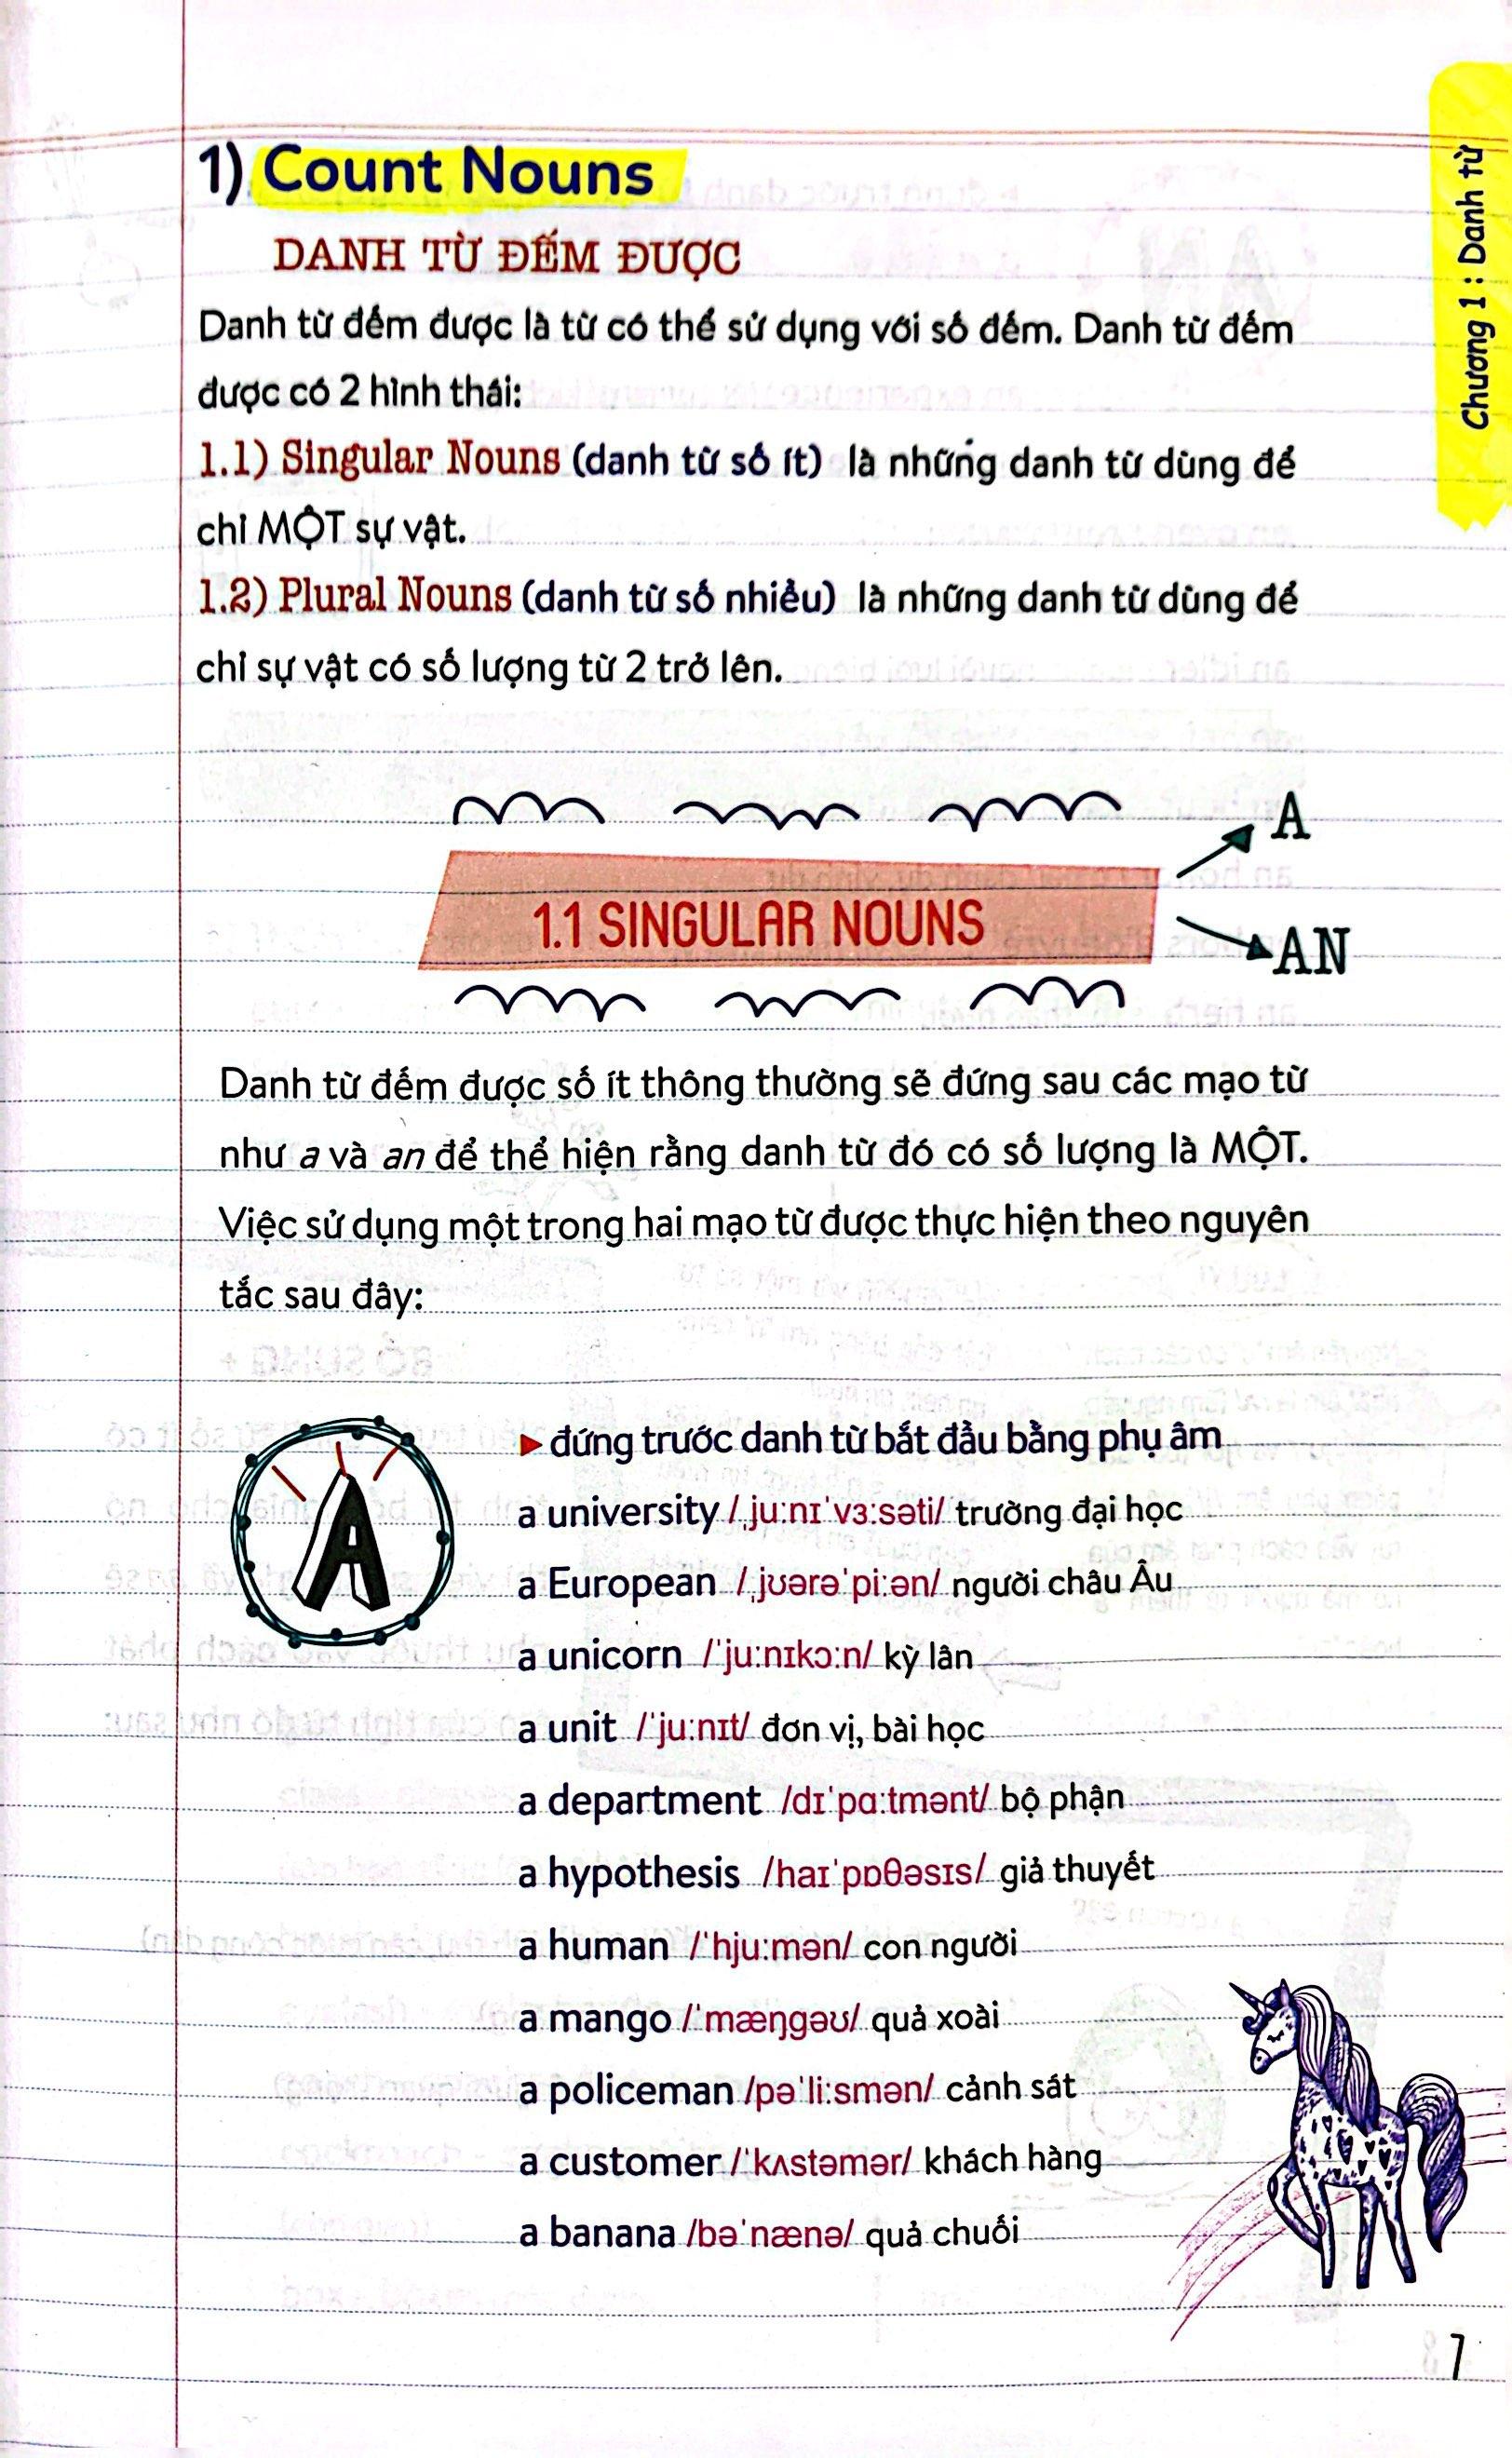 Chương 1 : Danh từ
1) Count Nouns
DANH TỪ ĐẾM ĐƯỢC
Danh từ đếm được là từ có thể sử dụng với số đếm. Danh từ đếm
được có 2 hình thái:
1.1) Singular Nouns (danh từ số ít) là những danh từ dùng để
chỉ MỘT sự vật.
1.2) Plural Nouns (danh từ số nhiều) là những danh từ dùng để
chỉ sự vật có số lượng từ 2 trở lên.
A
1.1 SINGULAR NOUNS
AN
Danh từ đếm được số ít thông thường sẽ đứng sau các mạo từ
như a và an để thể hiện rằng danh từ đó có số lượng là MỘT.
Việc sử dụng một trong hai mạo từ được thực hiện theo nguyên
tắc sau đây:
A
▸ đứng trước danh từ bắt đầu bằng phụ âm
a university /ˌjuːnɪˈvɜːsəti/ trường đại học
a European /ˌjʊərəˈpiːən/ người châu Âu
a unicorn /ˈjuːnɪkɔːn/ kỳ lân
a unit /ˈjuːnɪt/ đơn vị, bài học
a department /dɪˈpɑːtmənt/ bộ phận
a hypothesis /haɪˈpɒθəsɪs/ giả thuyết
a human /ˈhjuːmən/ con người
a mango /ˈmæŋgəʊ/ quả xoài
a policeman /pəˈliːsmən/ cảnh sát
a customer /ˈkʌstəmər/ khách hàng
a banana /bəˈnænə/ quả chuối
7